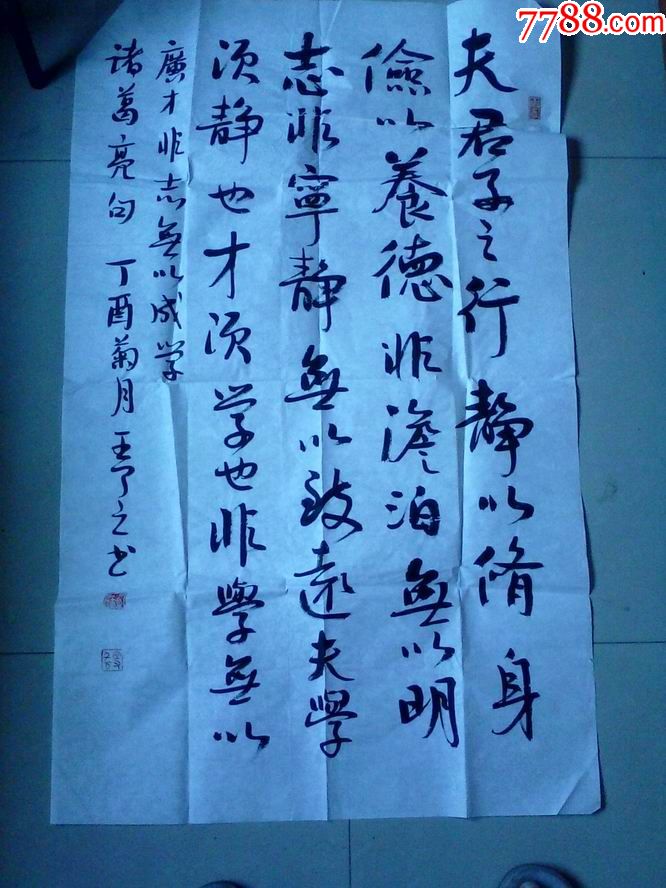 7788.com
中国收藏热线
夫君子之行静以脩身
儉以養德非澹泊無以明
志非寧静無以致遠夫學
须静也才须学也非學無以
廣才非志無以成学
诸葛亮句丁酉菊月王
之书